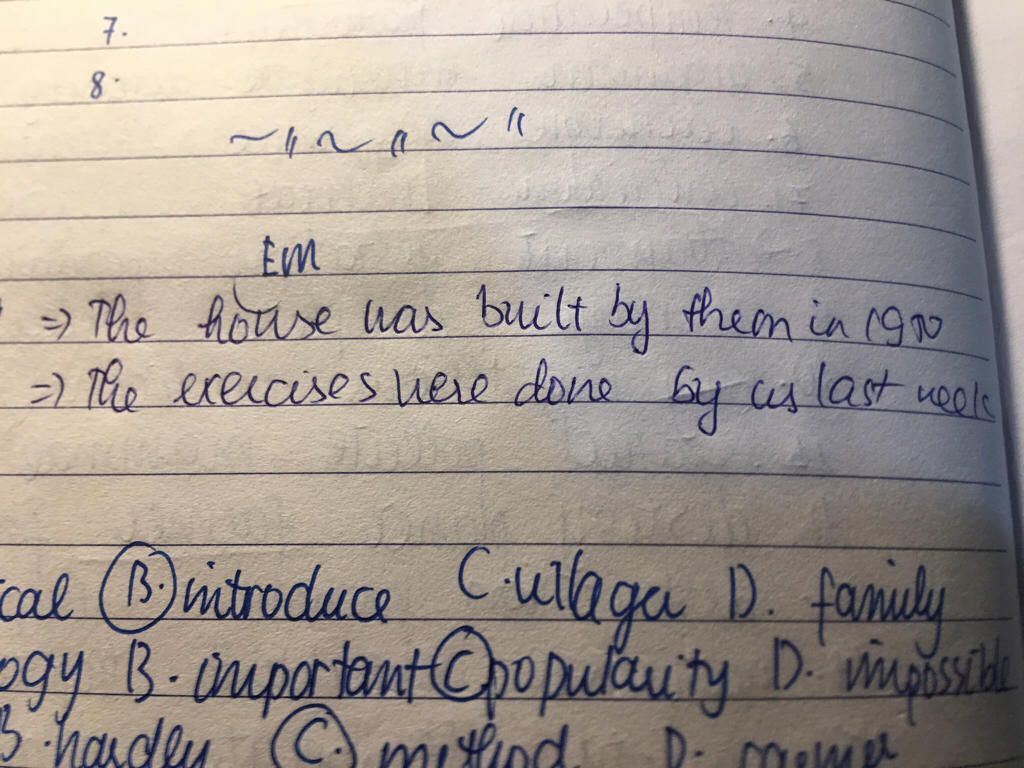 7.
8.
Em
=> The house was built by them in 1910
=> The exercises were done by us last week
cal B. introduce C. village D. family
ogy B. important C. popularity D. impossible
B. C. method D.